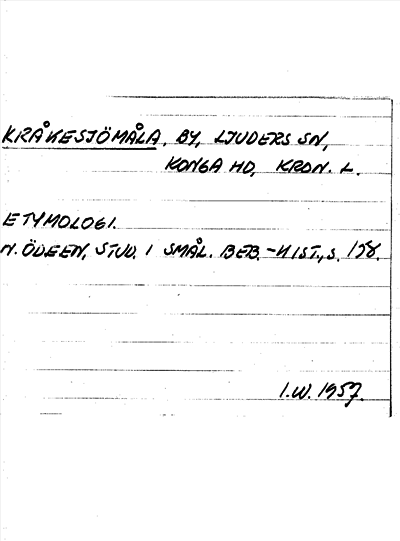 KRÅKESJÖMÅLA, BY, LJUDERS SN,
KONGA HD, KRON. L.
ETYMOLOGI.
N. ÖDEEN, STUD. I SMÅL. BEB.-HIST., S. 158.
I.W. 1957.